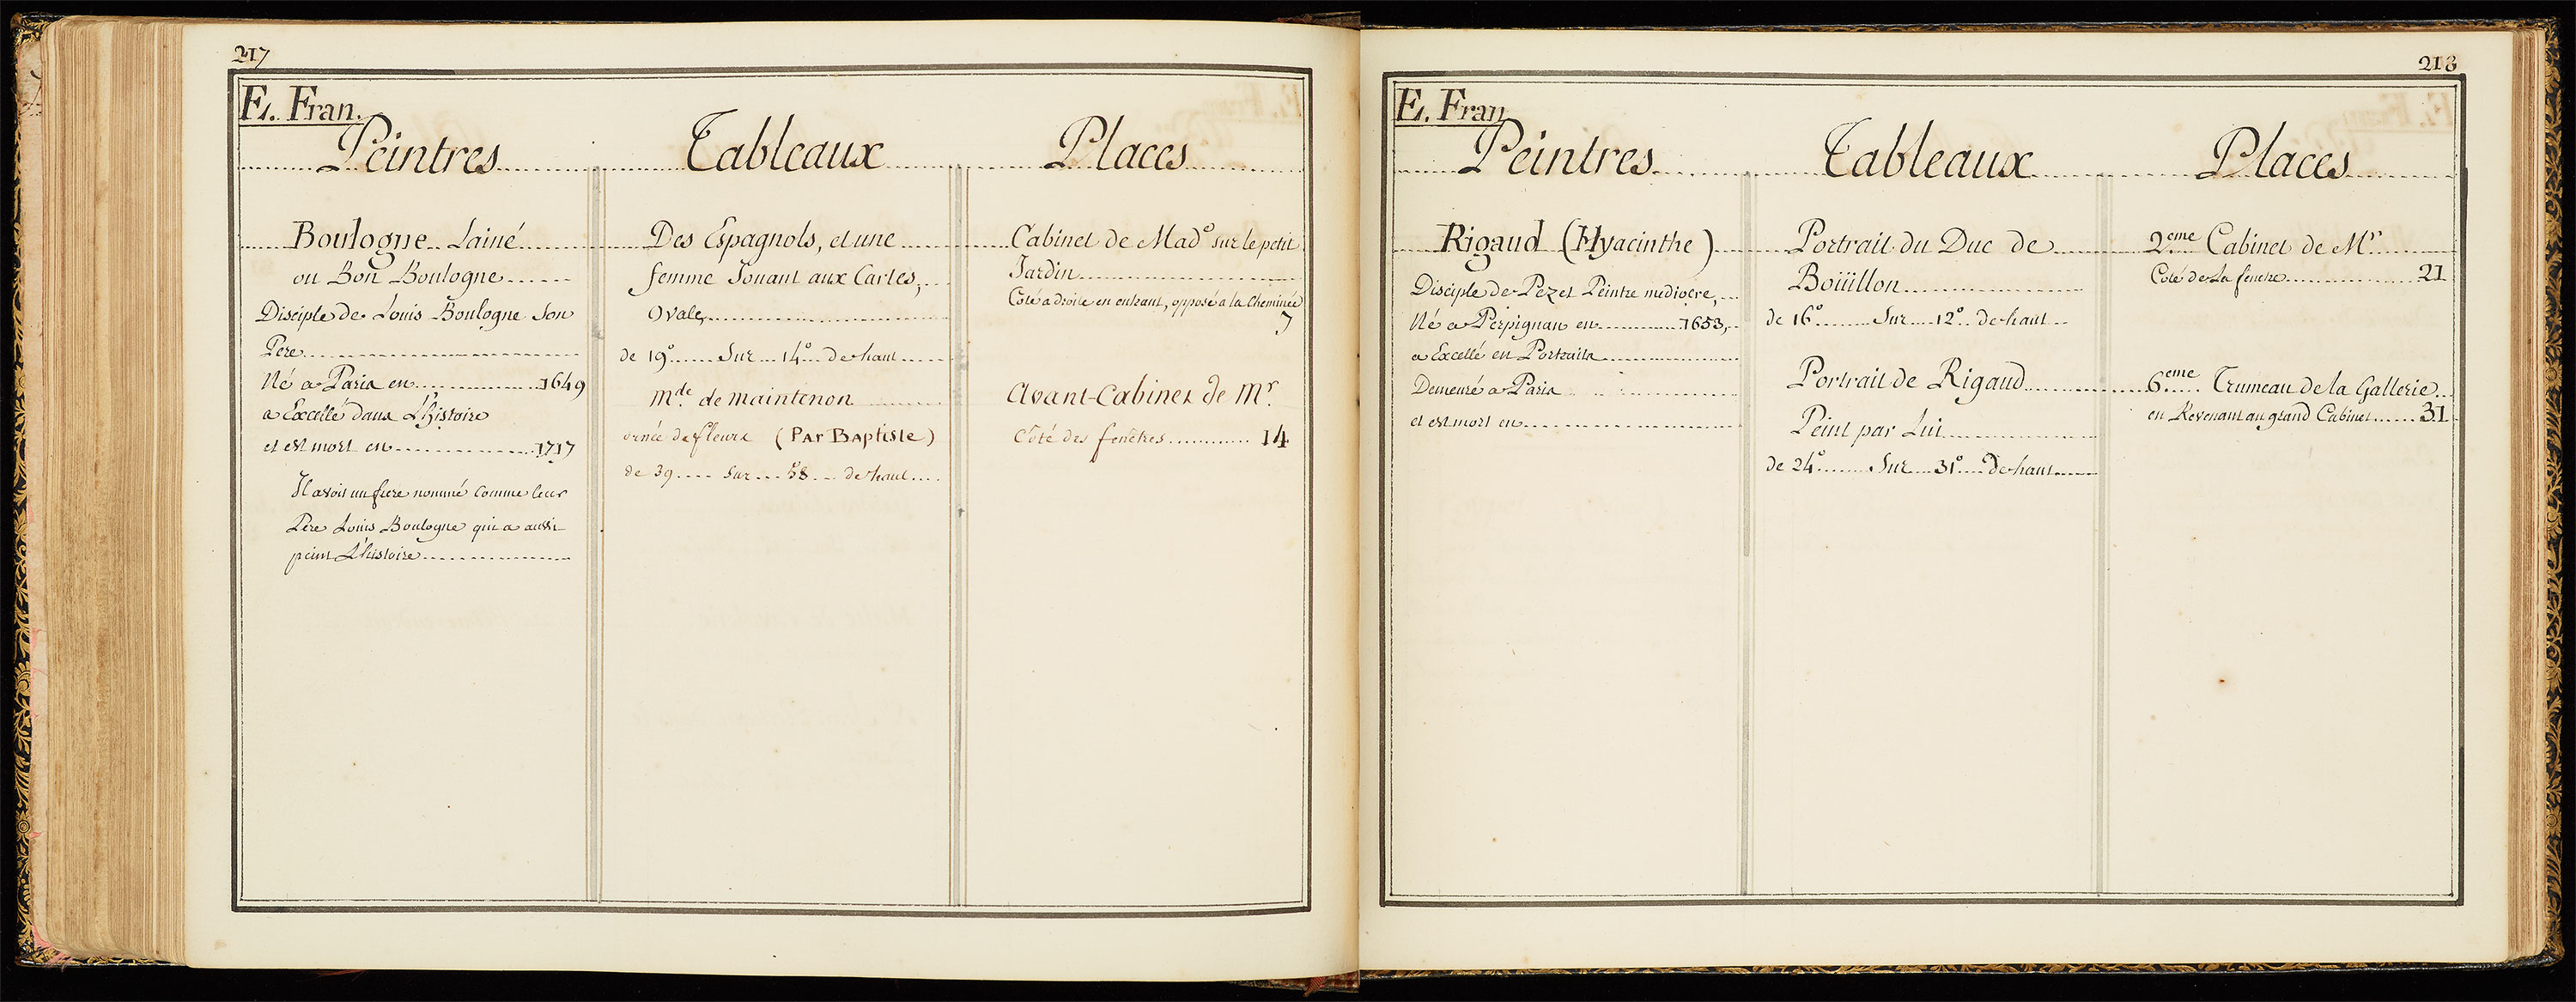 217
E. Fran.
Peintres Tableaux Places
Boulogne Lainé
ou Bon Boulogne
Disciple de Louis Boulogne Son
Pere
Né a Paris en 1649
a Excellé dans L'histoire
et est mort en 1717
Il avoit un frere nommé Comme leur
Pere Louis Boulogne qui a aussi
peint L'histoire
Des Espagnols, et une
femme Jouant aux Cartes,
Ovale,
de 19° Sur 14° de haut
Mde. de Maintenon
ornée de fleurs (Par Baptiste)
de 39 Sur 58 de haut
Cabinet de Mad° sur le petit
Jardin
Coté a droite en entrant, opposé a la Cheminée
7
Avant-Cabinet de Mr.
Côté des fenêtres 14
218
E. Fran
Peintres Tableaux Places
Rigaud (Hyacinthe)
Disciple de Pezet Peintre mediocre,
Né a Perpignan en 1653,
a Excellé en Portraits
Demeuré a Paris
et est mort en
Portrait du Duc de
Boüillon
de 16° Sur 12° de haut
Portrait de Rigaud
Peint par Lui
de 24° Sur 31° De haut
2eme Cabinet de Mr
Coté de La fenetre 21
6eme Trumeau de la Gallerie
en Revenant au grand Cabinet 31